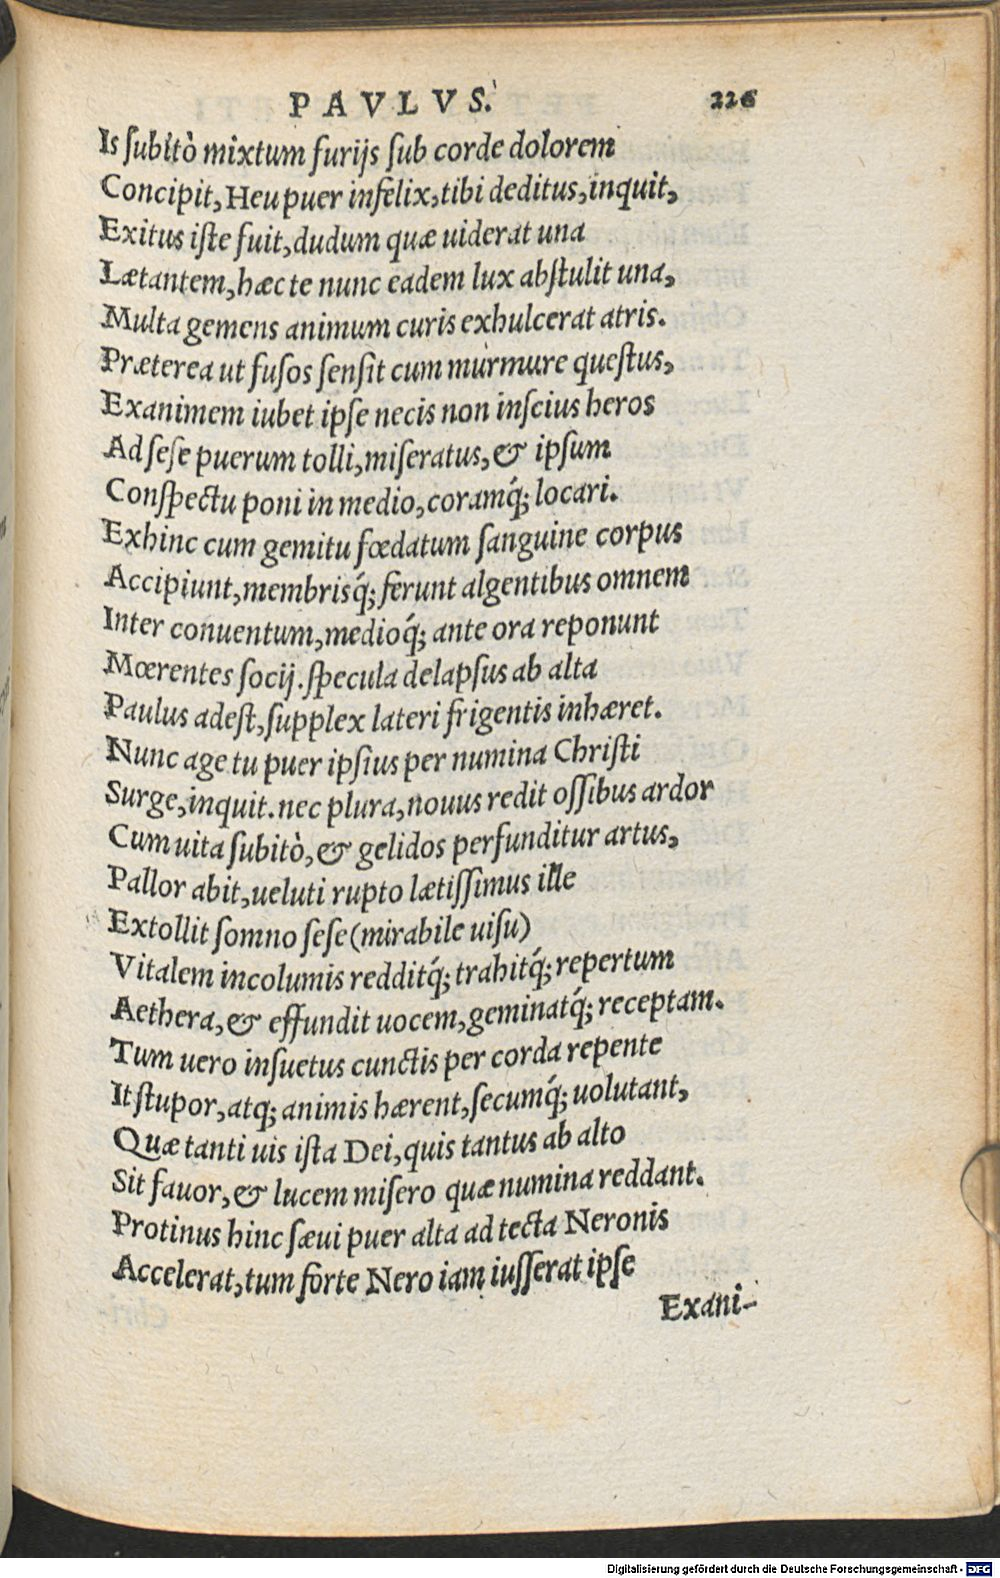 PAVLVS. 226
Is ſubitò mixtum furijs ſub corde dolorem
Concipit, Heu puer infelix, tibi deditus, inquit,
Exitus iſte fuit, dudum quæ uiderat una
Lætantem, hæc te nunc eadem lux abſtulit una,
Multa gemens animum curis exhulcerat atris.
Præterea ut fuſos ſenſit cum murmure queſtus,
Exanimem iubet ipſe necis non inſcius heros
Ad ſeſe puerum tolli, miſeratus, & ipſum
Conſpectu poni in medio, coramq́; locari.
Exhinc cum gemitu fœdatum ſanguine corpus
Accipiunt, membrisq́; ferunt algentibus omnem
Inter conuentum, medioq́; ante ora reponunt
Mœrentes ſocij. ſpecula delapſus ab alta
Paulus adeſt, ſupplex lateri frigentis inhæret.
Nunc age tu puer ipſius per numina Chriſti
Surge, inquit. nec plura, nouus redit oſſibus ardor
Cum uita ſubitò, & gelidos perfunditur artus,
Pallor abit, ueluti rupto lætiſſimus ille
Extollit ſomno ſeſe (mirabile uiſu)
Vitalem incolumis redditq́; trahitq́; repertum
Aethera, & effundit uocem, geminatq́; receptam.
Tum uero inſuetus cunctis per corda repente
It ſtupor, atq; animis hærent, ſecumq́; uolutant,
Quæ tanti uis iſta Dei, quis tantus ab alto
Sit fauor, & lucem miſero quæ numina reddant.
Protinus hinc ſæui puer alta ad tecta Neronis
Accelerat, tum forte Nero iam iuſſerat ipſe
Exani-
Digitalisierung gefördert durch die Deutsche Forschungsgemeinschaft - DFG